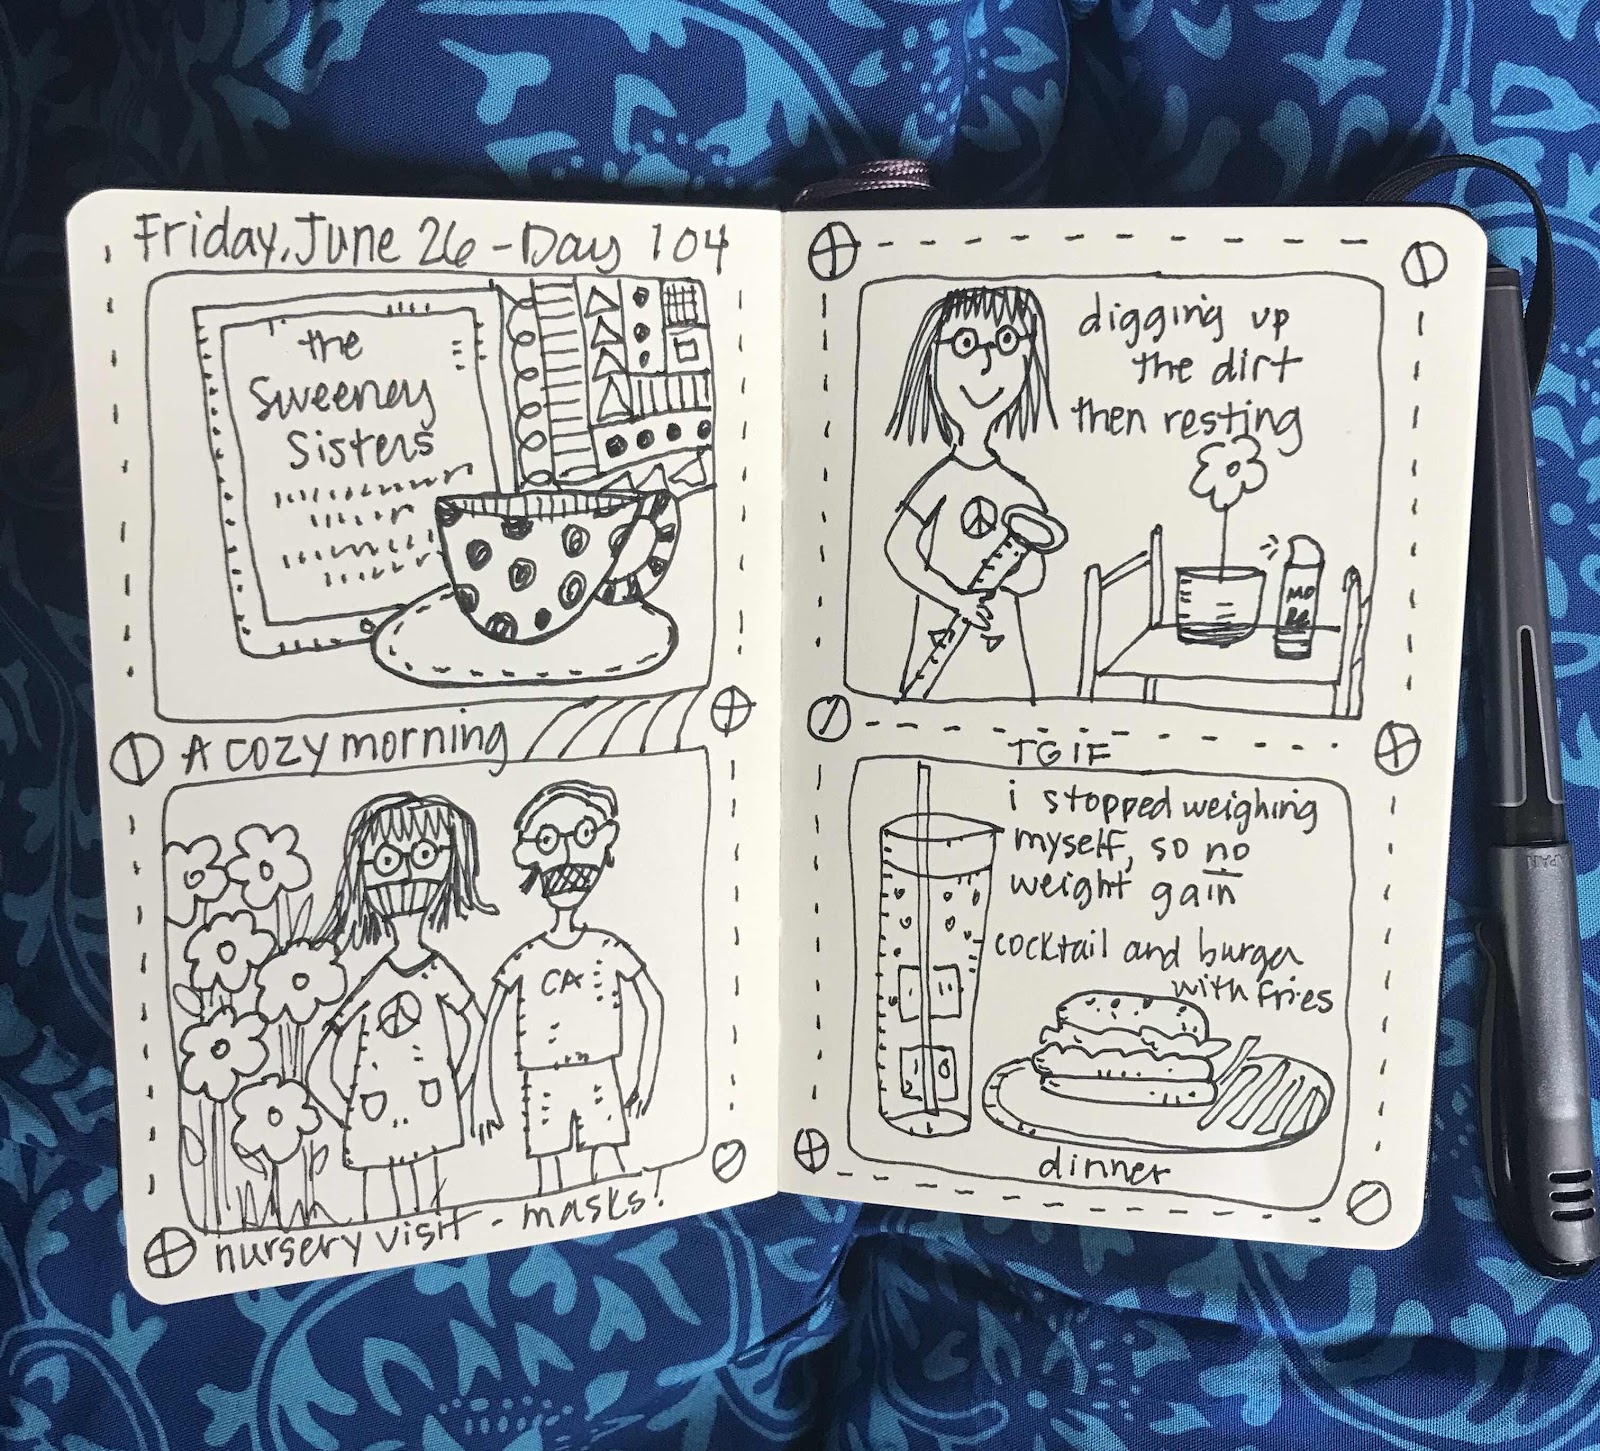 Friday, June 26 - Day 104
the
Sweeney
Sisters
A cozy morning
CA
nursery visit - masks!
digging up
the dirt
then resting
TGIF
i stopped weighing
myself, so no
weight gain
cocktail and burger
with fries
dinner
JAPAN